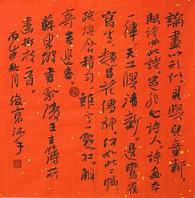 論畫以形似見與兒童鄰
賦詩必此詩定非知詩人詩畫本
一律天工與清新邊鸞雀
寫生趙昌花傳神何如此二幅
疏淡含精勻誰言一點紅解
寄無邊春
蘇東坡書鄢陵王主簿所
畫折枝詩
秋月